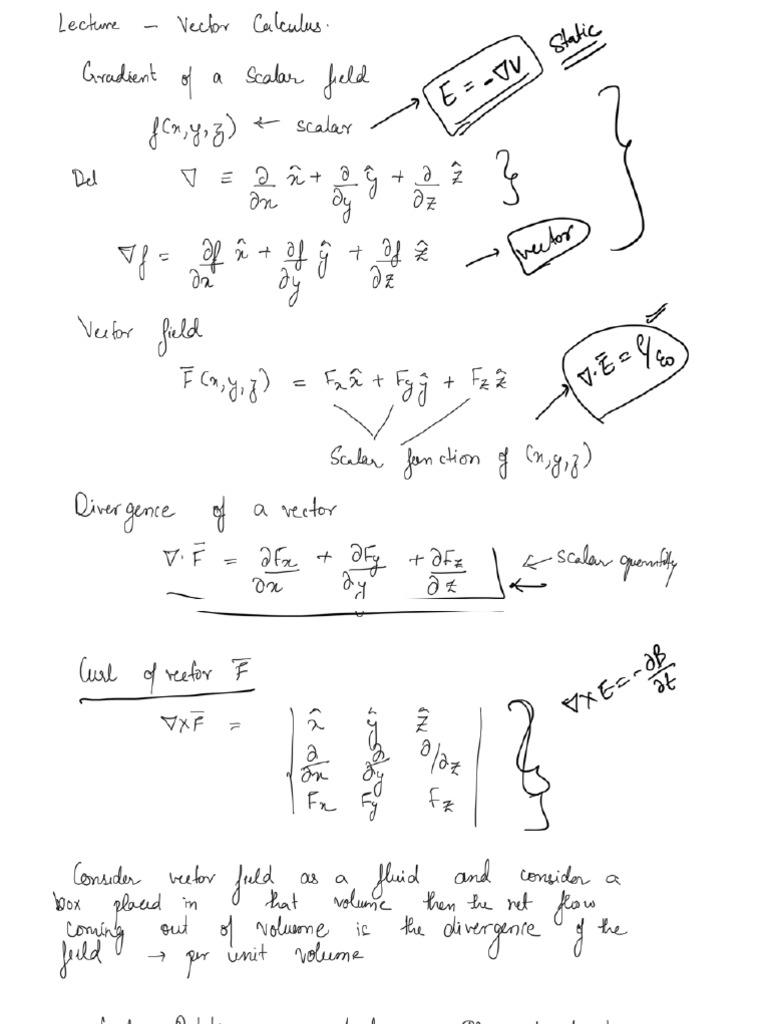 Lecture – Vector Calculus.
Static
Gradient of a Scalar field
E = -∇V
f(x,y,z) ← scalar
Del ∇ ≡ ∂/∂x x̂ + ∂/∂y ŷ + ∂/∂z ẑ
∇f = ∂f/∂x x̂ + ∂f/∂y ŷ + ∂f/∂z ẑ → vector
Vector field
∇·Ē = ρ/ε0
F̄(x,y,z) = Fx x̂ + Fy ŷ + Fz ẑ
Scalar function of (x,y,z)
Divergence of a vector
∇·F̄ = ∂Fx/∂x + ∂Fy/∂y + ∂Fz/∂z ← scalar quantity
Curl of vector F̄
∇×E = -∂B/∂t
∇×F̄ = | x̂ ŷ ẑ |
∂/∂x ∂/∂y ∂/∂z
Fx Fy Fz
Consider vector field as a fluid and consider a
box placed in that volume then the net flow
coming out of volume is the divergence of the
feild → per unit volume